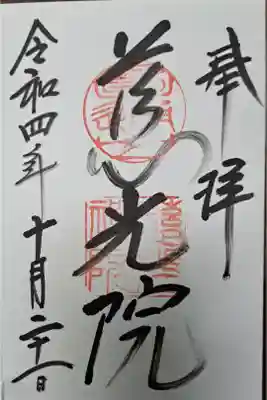 奉拝
慈光院
令和四年十月二十一日